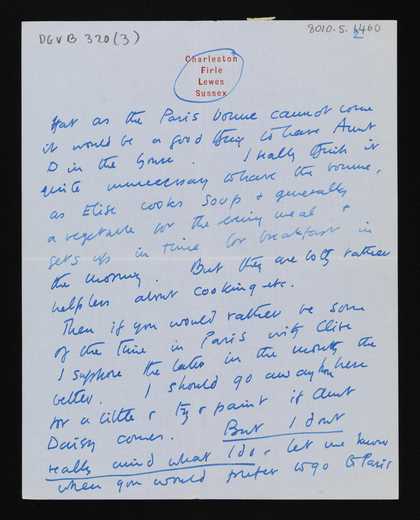 DGVB 320(3)
8010.5.1460
2
Charleston
Firle
Lewes
Sussex
that as the Paris bonne cannot come
it would be a good thing to have Aunt
D in the house. I really think it
quite unnecessary to have the bonne,
as Elise cooks soup & generally
a vegetable for the evening meal &
gets up in time for breakfast in
the morning. But they are both rather
helpless about cooking etc.
Then if you would rather be some
of the time in Paris with Clive
I suppose the later in the month the
better. I should go away from here
for a little & try & paint if Aunt
Daisy comes. But I dont
really mind what I do. let me know
when you would prefer to go to Paris